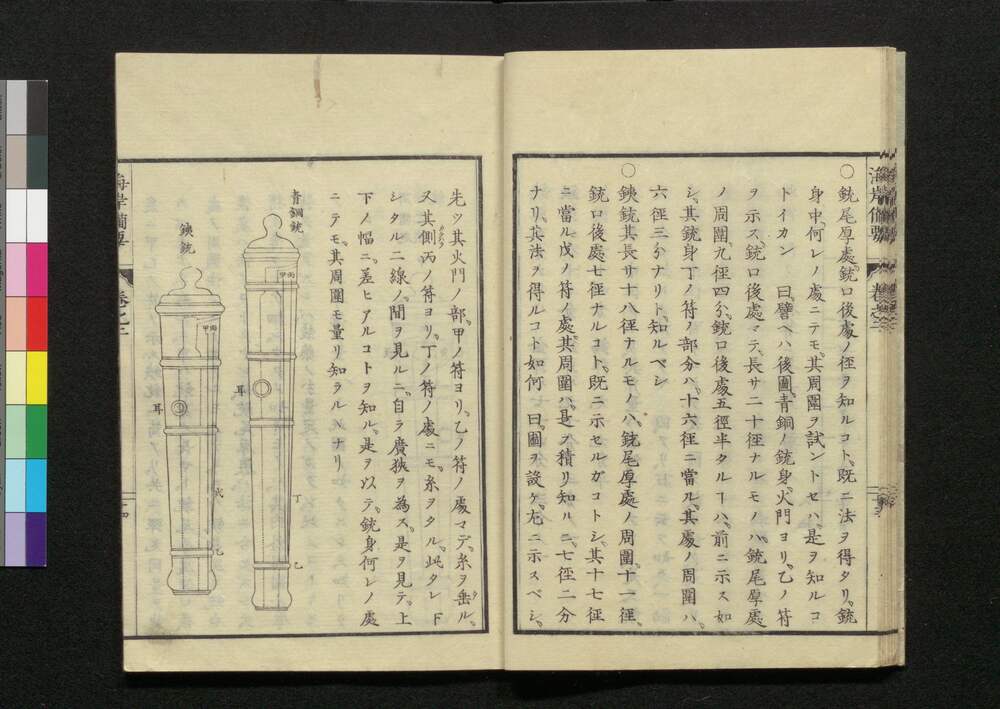 ○銃尾厚處、銃口後處ノ徑ヲ知ルコト、既ニ法ヲ得タリ、銃
身中何レノ處ニテモ、其周圍ヲ試ントセハ、是ヲ知ルコ
トイカン 曰、譬ヘハ後圖、青銅ノ銃身、火門ヨリ、乙ノ符
ヲ示ス、銃口後處マテ、長サ二十徑ナルモノハ、銃尾厚處
ノ周圍、九徑四分、銃口後處五徑半タルヿハ、前ニ示ス如
シ、其銃身丁ノ符ノ部分ハ、十六徑ニ當ル、其處ノ周圍ハ、
六徑三分ナリト、知ルベシ
○鐵銃其長サ十八徑ナルモノハ、銃尾厚處ノ周圍、十一徑、
銃口後處七徑ナルコト、既ニ示セルガコトシ、其十七徑
ニ當ル戊ノ符ノ處、其周圍ハ、是ヲ積リ知ルニ、七徑二分
ナリ、其法ヲ得ルコト如何 曰、圖ヲ設ケ、左ニ示スベシ、
海岸備要 卷之二
先ツ其火門ノ部、甲ノ符ヨリ、乙ノ符ノ處マデ、糸ヲ垂ル、
又其側丙ノ符ヨリ、丁ノ符ノ處ニモ、糸ヲタル、此タレ下
シタル二線ノ、間ヲ見ルニ、自ラ廣狹ヲ為ス、是ヲ見テ、上
下ノ幅ニ、差ヒアルコトヲ知ル、是ヲ以テ、銃身何レノ處
ニテモ、其周圍モ量リ知ラルヽナリ
青銅銃
丙
甲
耳
丁
乙
鐵銃
丙
甲
耳
戊
乙
海岸備要 卷之二